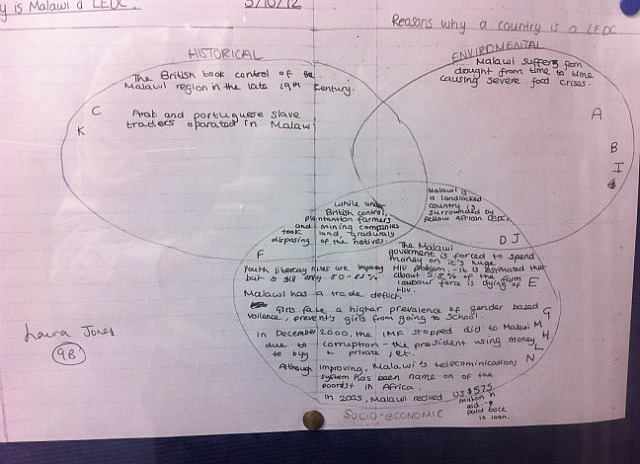 y is Malawi a LEDC.
3/10/12
Reasons why a country is a LEDC
HISTORICAL
The British took control of the
Malawil region in the late 19th Century.
Arab and portuguese slave
traders oparated in Malawi
C
K
ENVIROMENTAL
Malawi suffers from
drought from time to time
causing severe food crises.
A
B
I
while under
British control,
plantantion farmers
and mining companies
took land, gradually
disposing of the natives.
F
Malawi is
a landlocked
country is
surrowded by
fellow African LEDC.
D J
The Malawi
goverment is forced to spend
money on it's huge
HIV problem - it is estimated that
about 5.8% of the farm
labour force is dying of
HIV.
E
Youth literacy rates are improving
but is still only
Malawi has a trade deficit.
Girls face a higher prevalence of gender based
voilence, prevents girls from going to school.
G
In December 2000, the IMF stopped aid to Malawi
due to corruption - the president using money
to buy private, etc.
M
H
L
N
Although improving, Malawi's telecominications
system has been name on of the
poorest in Africa.
In 2005, Malawi recived US $575
million in
aid -
paid back
in loan.
SOCIO-ECONOMIC
Laura Jones
9B